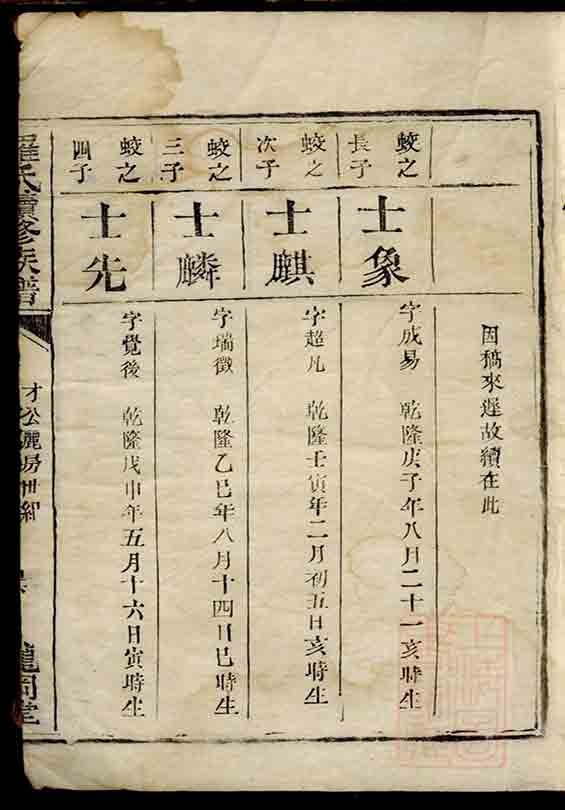 因稿來遲故續在此
蛟之長子
士象
字成易 乾隆庚子年八月二十一亥時生
蛟之次子
士麒
字超凡 乾隆壬寅年二月初五日亥時生
蛟之三子
士麟
字瑞徵 乾隆乙巳年八月十四日巳時生
蛟之四子
士先
字覺後 乾隆戊申年五月十六日寅時生
氏續修族譜
才公麗房世紀